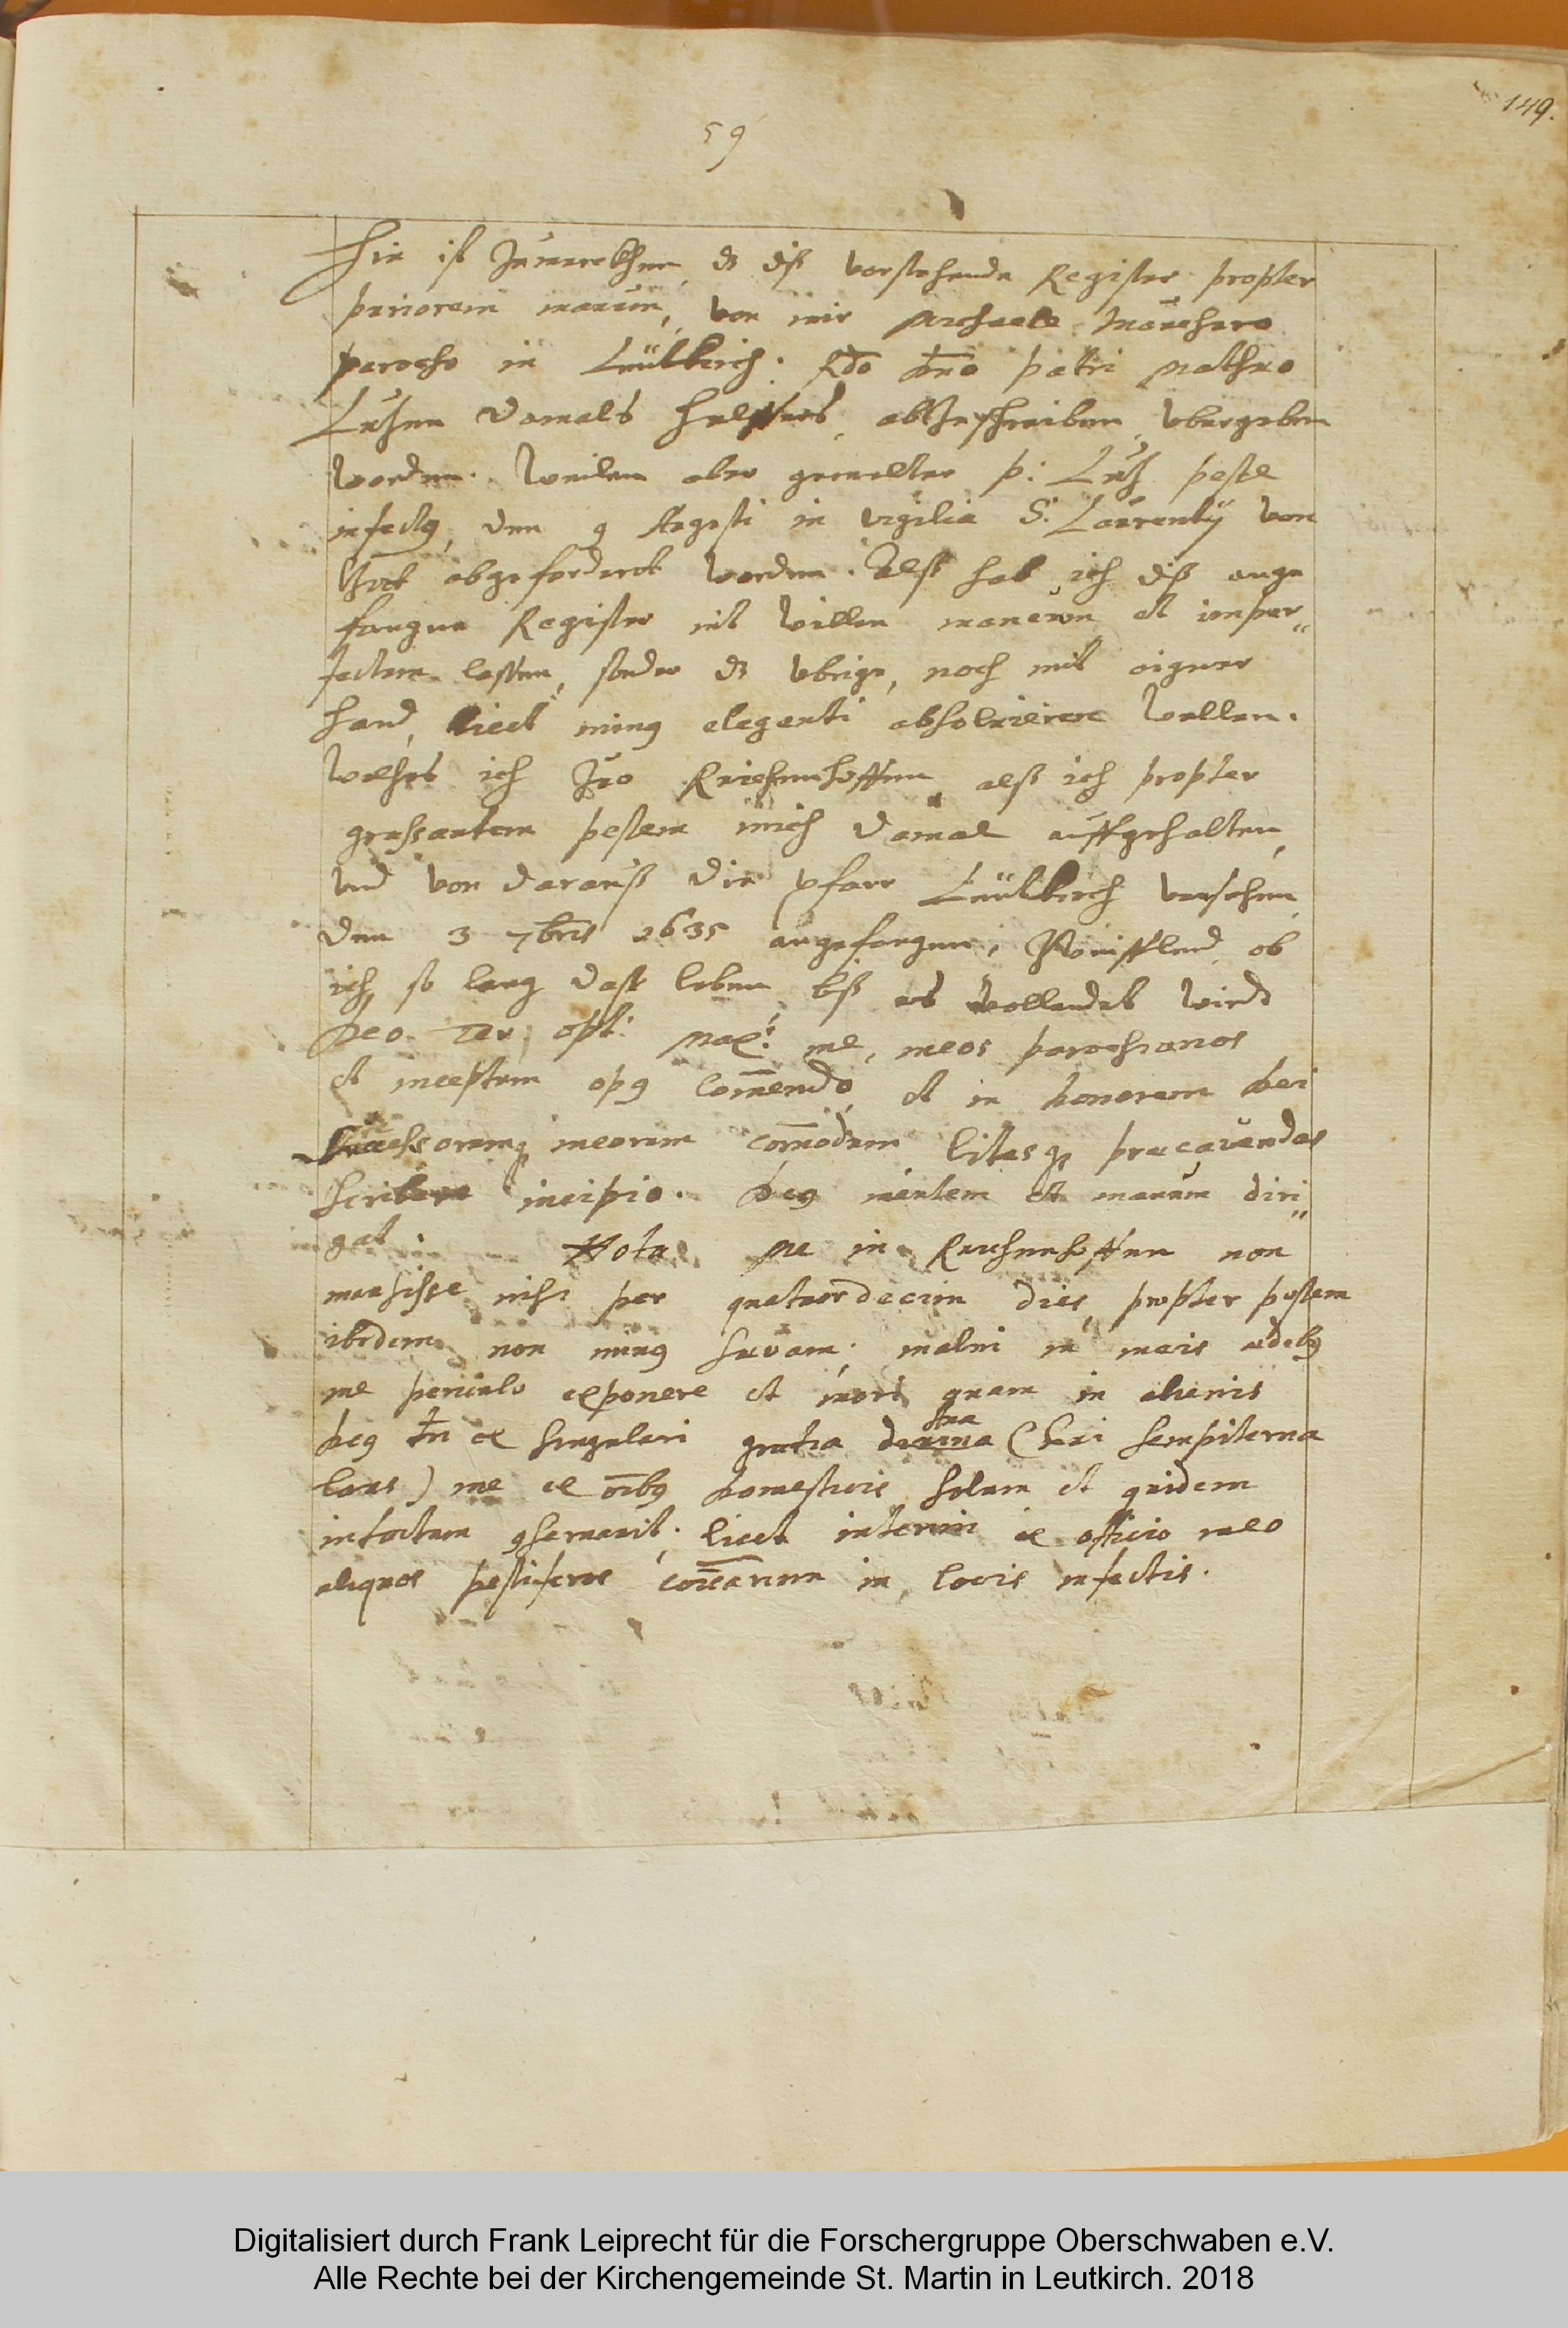 149.
59
Hie ist Zumerckhen, dz diß vorstehende Register propter
pariorem manum, von mir Michaele
parocho in Leütkirch. Rdo dno patri Mathæo
Luzen damals helffers, abzeschreiben vbergeben
worden. Weilen aber gemelter P: Luz peste
infectus, den 9 Augusti in vigilia S. Laurentÿ von
Gott abgefordert worden. Alß hab ich diß ange
fangne Register nit willen mancum et imper„
fectum lassen, sonder dz vbrige, noch mit aigner
hand, licet minus eleganti absolvieren wellen.
Welches ich zuo Reichenhoffen, alß ich propter
grassantem pestem mich damal auffgehalten,
vnd von darauß die pfarr Leütkirch versehen,
den 3 7bris 1635 angefangen, Zweifflend ob
ich so lang dass leben, biß es vollendet wirdt
Deo Ter opt: Max: me, meos parochianos
et inceptum opus com̄endo, et in honorem Dei
Successorumq meorum com̄odum litesq præcavendas
scribere incipio. Deus mentem et manum diri„
gat. Nota me in Reichenhoffen non
mansisse nisi per quatuordecim dies, propter pestem
ibidem non minus sævam; malui in meis ædibus
me periculo exponere et mori quam in alienis
Deus tn̄ ex singulari gratia divina sua (cui sempiterna
laus) me ex oībus domesticis solum et quidem
intactum conservavit. licet interim ex officio meo
aliquos pestiferos in locis infectis.
Digitalisiert durch Frank Leiprecht für die Forschergruppe Oberschwaben e.V.
Alle Rechte bei der Kirchengemeinde St. Martin in Leutkirch. 2018